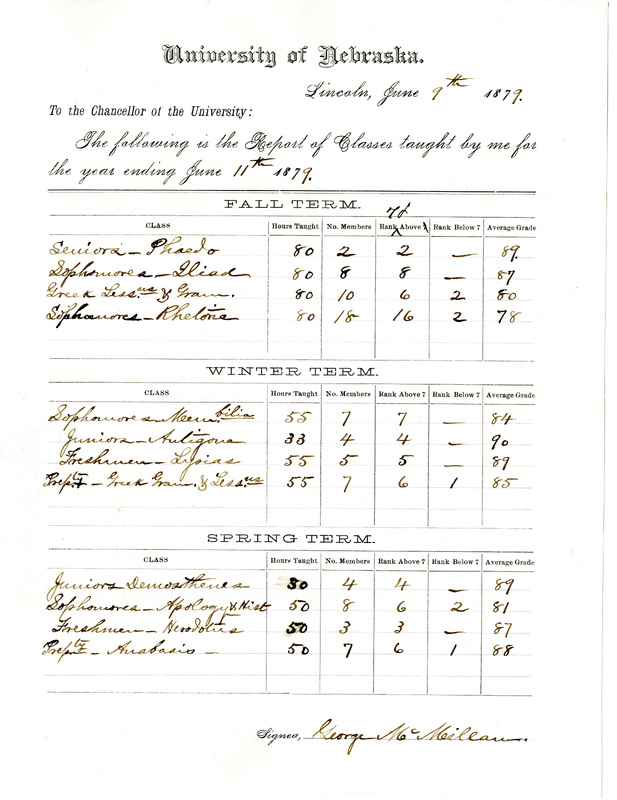 University of Nebraska.
Lincoln, June 9th 1879.
To the Chancellor of the University:
The following is the Report of Classes taught by me for
the year ending June 11th 1879.
FALL TERM.
70
CLASS Hours Taught No. Members Rank Above 7 Rank Below 7 Average Grade
Seniors – Phaedo 80 2 2 — 89.
Sophomores – Iliad 80 8 8 — 87
Greek Less.ns & Gram. 80 10 6 2 80
Sophomores – Rhetoric 80 18 16 2 78
WINTER TERM.
CLASS Hours Taught No. Members Rank Above 7 Rank Below 7 Average Grade
Sophomores – Mem.bilia 55 7 7 — 84
Juniors – Antigone 33 4 4 – 90
Freshmen – Lysias 55 5 5 — 89
Prep. – Greek Gram. & Less.ns 55 7 6 1 85
SPRING TERM.
CLASS Hours Taught No. Members Rank Above 7 Rank Below 7 Average Grade
Juniors Demosthenes 30 4 4 – 89
Sophomores – Apology & Hist 50 8 6 2 81
Freshmen – Herodotus 50 3 3 — 87
Prep. – Anabasis – 50 7 6 1 88
Signed, George McMillan.